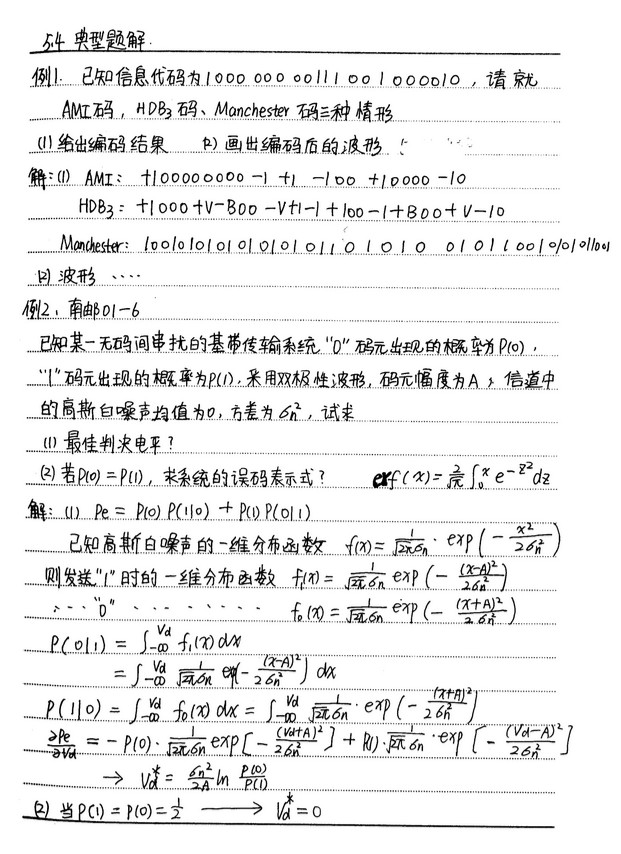 5.4 典型题解.
例1. 已知信息代码为1000 000 00111 001 000010，请就
AMI码，HDB₃码、Manchester码三种情形
(1)给出编码结果 (2)画出编码后的波形
解:(1) AMI: +100000000 -1 +1 -100 +10000 -10
HDB₃: +1000+V-B00-V+1-1+100-1+B00+V-10
Manchester:
(2)波形 ····
例2、南邮01-6
已知某一无码间串扰的基带传输系统"0"码元出现的概率为P(0)，
"1"码元出现的概率为P(1)，采用双极性波形，码元幅度为A；信道中
的高斯白噪声均值为0，方差为σn²，试求
(1)最佳判决电平?
(2)若P(0)=P(1)，求系统的误码表示式? erf(x)=2/√π ∫₀ˣ e^(-z²)dz
解:(1) Pe = P(0)P(1|0) + P(1)P(0|1)
已知高斯白噪声的一维分布函数 f(x)=1/(√2π σn)·exp(-x²/2σn²)
则发送"1"时的一维分布函数 f₁(x)=1/(√2π σn) exp(-(x-A)²/2σn²)
···"0"········ f₀(x)=1/(√2π σn) exp(-(x+A)²/2σn²)
P(0|1) = ∫_{-∞}^{Vd} f₁(x)dx
= ∫_{-∞}^{Vd} 1/(√2π σn) exp(-(x-A)²/2σn²) dx
P(1|0) = ∫_{-∞}^{Vd} f₀(x)dx = ∫_{-∞}^{Vd} 1/(√2π σn)·exp(-(x+A)²/2σn²)
∂Pe/∂Vd = -P(0)·1/(√2π σn) exp[-(Vd+A)²/2σn²] + P(1)·1/(√2π σn)·exp[-(Vd-A)²/2σn²]
→ Vd* = σn²/2A ln P(0)/P(1)
(2) 当P(1)=P(0)=1/2 ⟶ Vd*=0